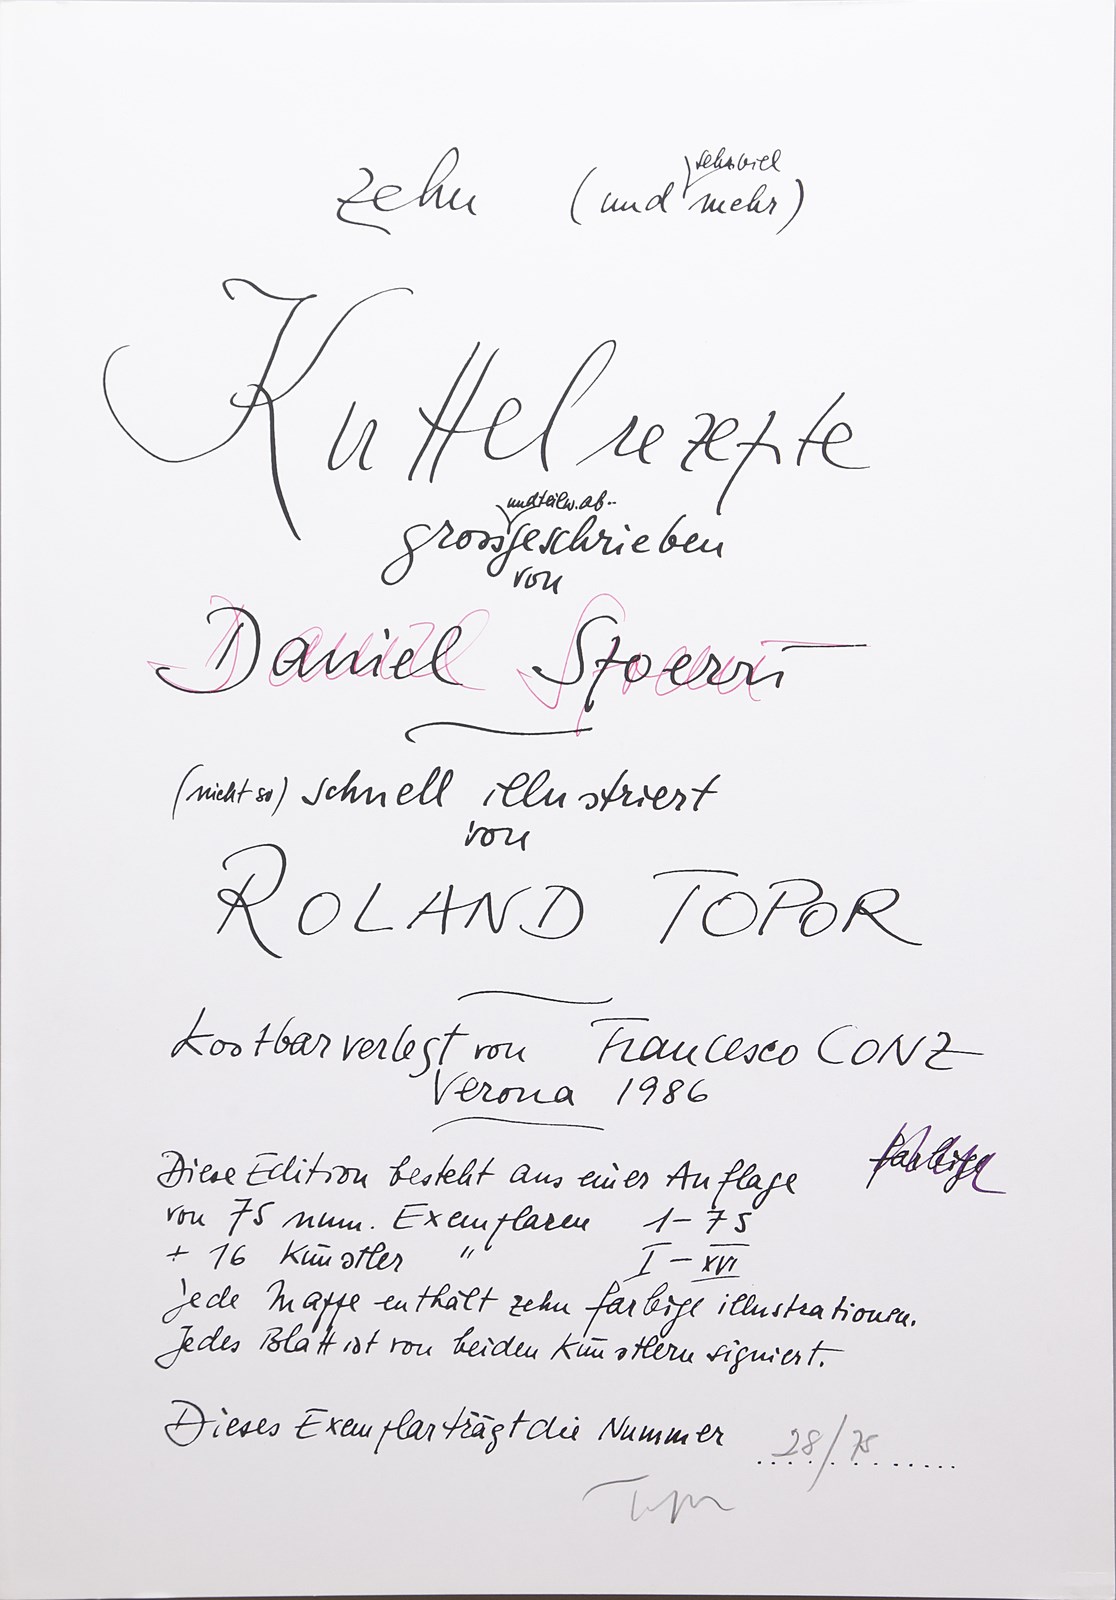 sehr viel
zehn (und mehr)
Kuttelrezepte
und teilw. ab--
grossgeschrieben
von
Daniel Spoerri
(nicht so) schnell illustriert
von
ROLAND TOPOR
kostbar verlegt von Francesco CONZ
Verona 1986
farbige
Diese Edition besteht aus einer Auflage
von 75 num. Exemplaren 1-75
+ 16 Künstler " I-XVI
jede Mappe enthält zehn farbige illustrationen.
Jedes Blatt ist von beiden Künstlern signiert.
Dieses Exemplar trägt die Nummer 28/75
Topor